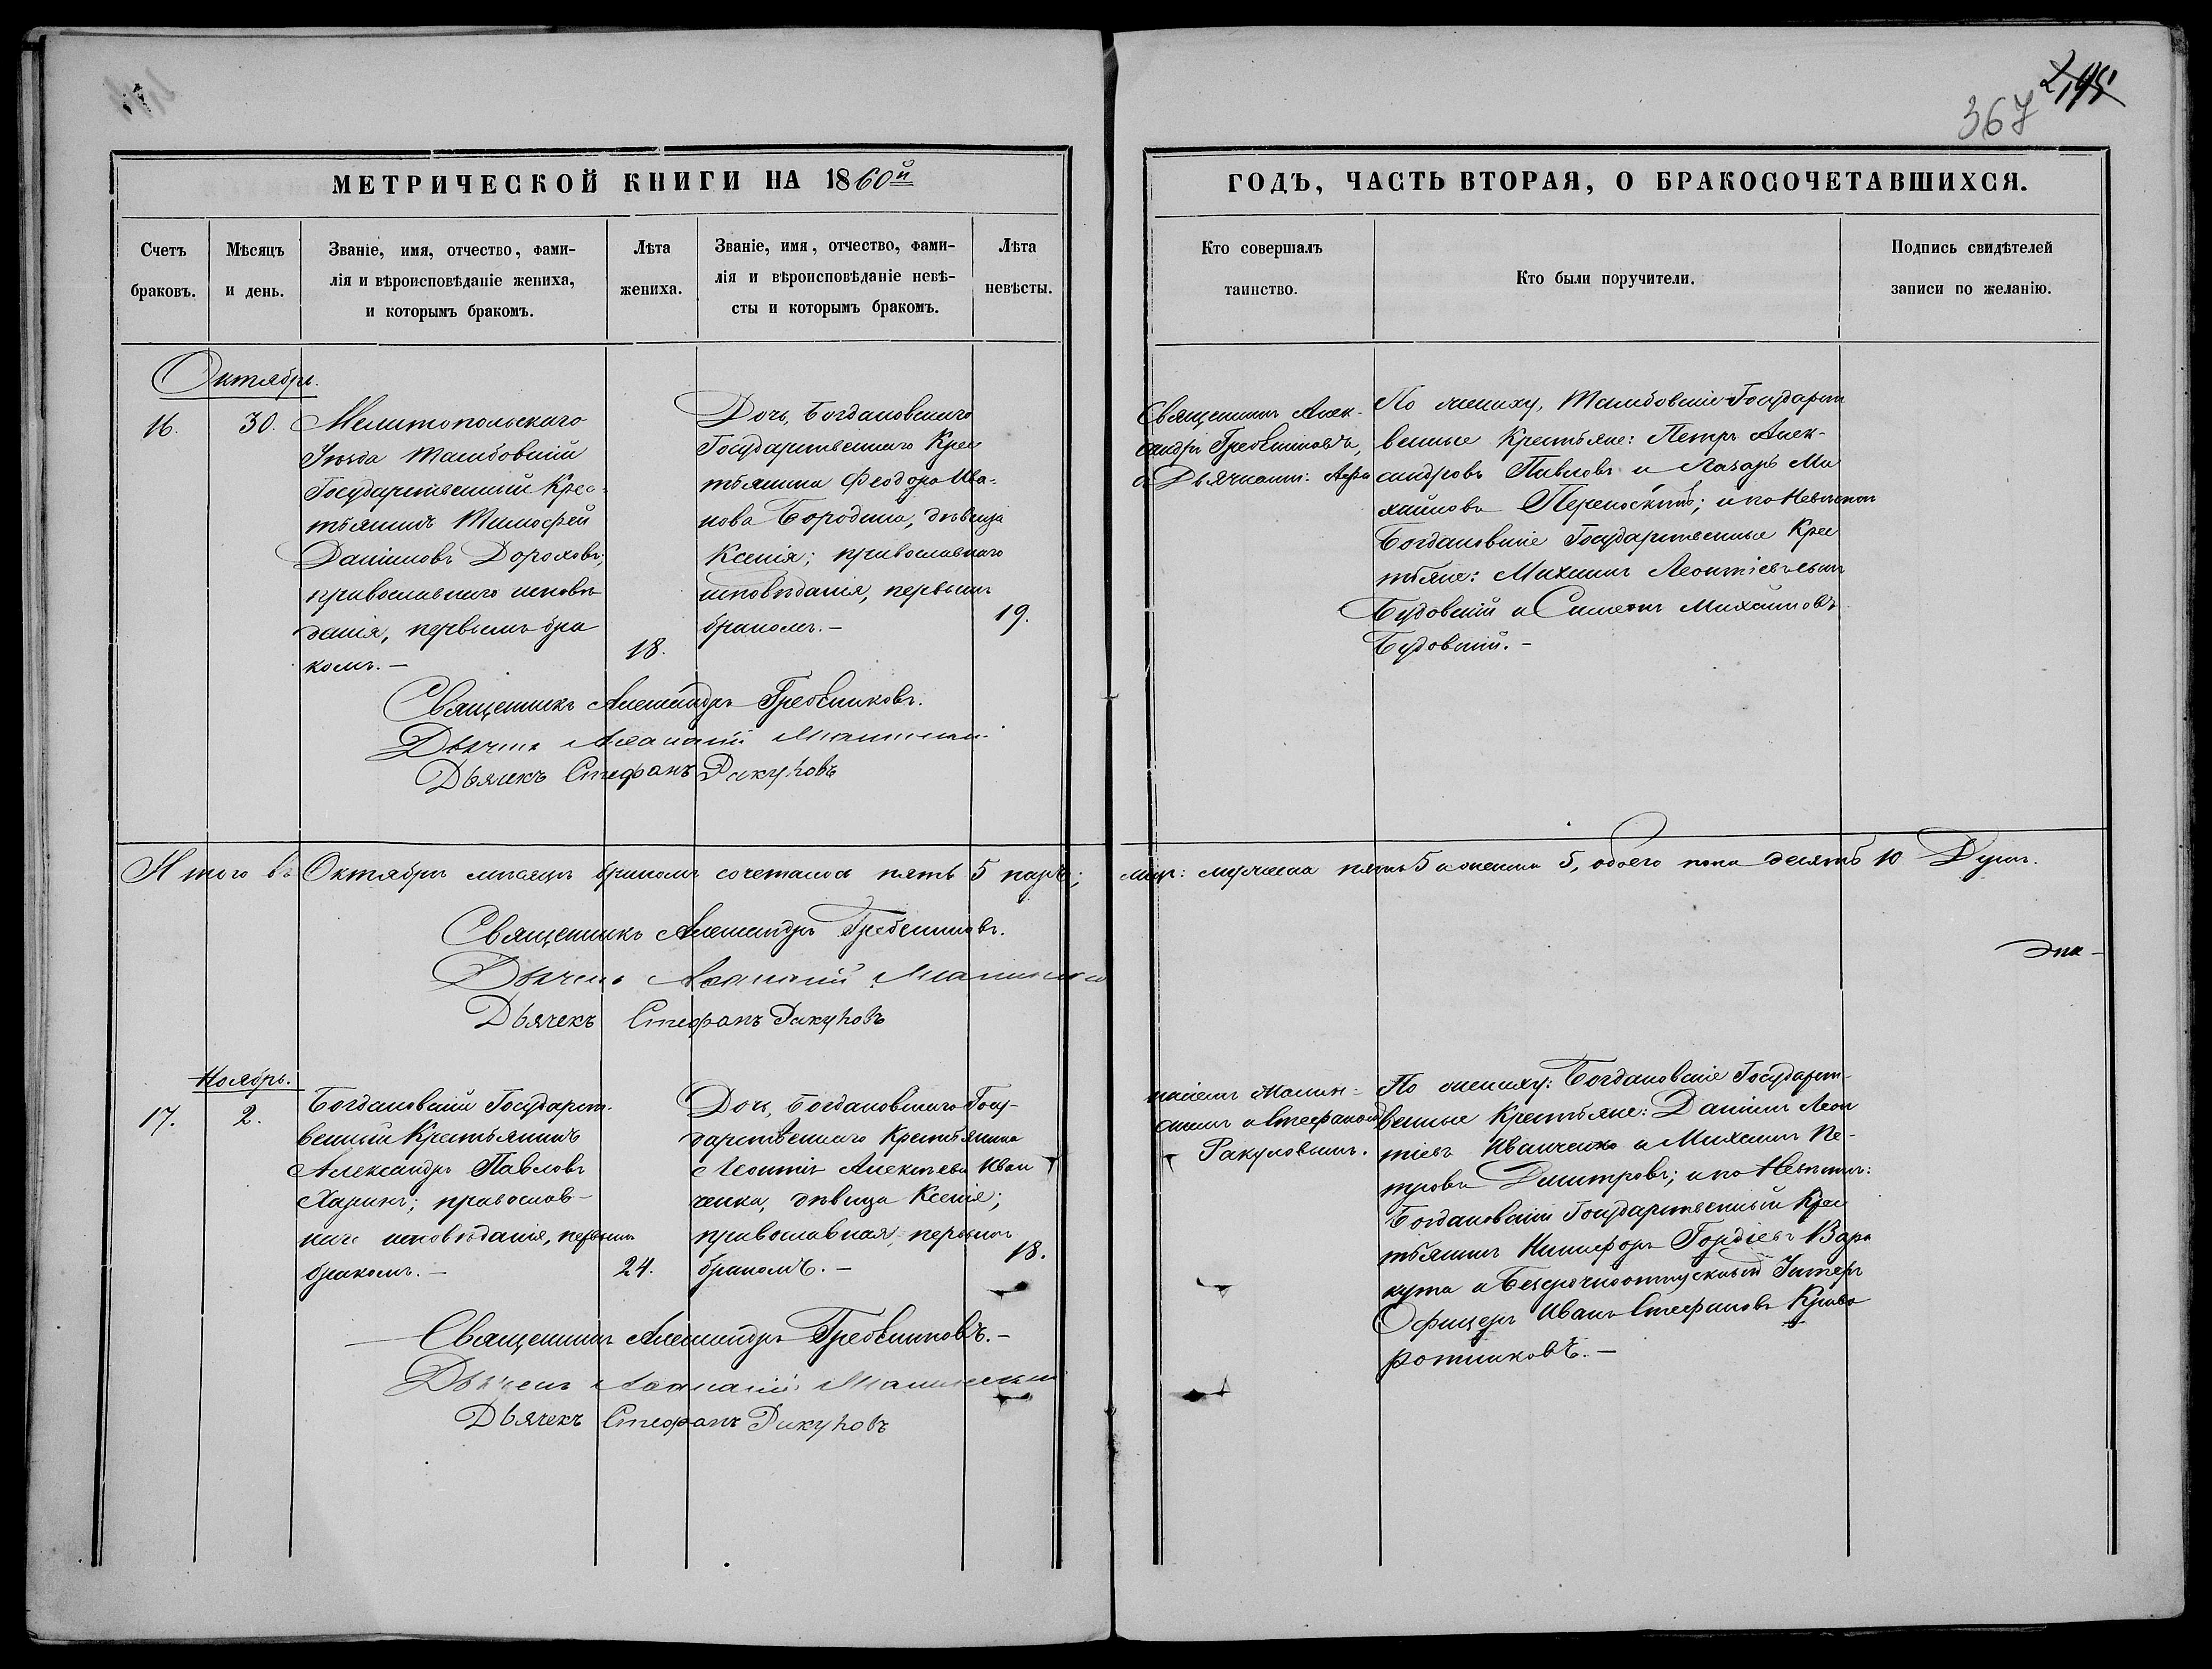 367
МЕТРИЧЕСКОЙ КНИГИ НА 1860й
ГОДЪ, ЧАСТЬ ВТОРАЯ, О БРАКОСОЧЕТАВШИХСЯ.
Счетъ
браковъ.
Мѣсяцъ
и день.
Званіе, имя, отчество, фами-
лія и вѣроисповѣданіе жениха,
и которымъ бракомъ.
Лѣта
жениха.
Званіе, имя, отчество, фами-
лія и вѣроисповѣданіе невѣ-
сты и которымъ бракомъ.
Лѣта
невѣсты.
Кто совершалъ
таинство.
Кто были поручители.
Подпись свидѣтелей
записи по желанію.
Октябрь.
16.
30.
Мелитопольскаго
Уѣзда Тамбовскій
Государственный Крес-
тьянинъ Тимофей
Даніиловъ Дороховъ;
православнаго исповѣ
данія, первымъ бра
комъ. —
18.
Дочь, Богдановскаго
Государственнаго Крес
тьянина Феодора Ива-
нова Бородина, дѣвица
Ксенія; православнаго
исповѣданія, первымъ
бракомъ. —
19.
Священникъ Алек-
сандръ Гребенниковъ,
и Дьячками: Афа
По жениху, Тамбовскіе Государст
венные Крестьяне: Петръ Алек-
сандровъ Павловъ и Лазарь Ми
хайловъ; и по Невѣстѣ
Богдановскіе Государственные Крес
тьяне: Михаилъ Леонтіевъ
Будовскій и Симеонъ Михайловъ
Будовскій. —
Священникъ Александръ Гребенниковъ.
Дьячекъ Афанасій
Дьячекъ Стефанъ Ракуловъ
Итого въ Октябрѣ мѣсяцѣ бракомъ сочеталось пять 5 паръ; мужеска пять 5 и женска 5, обоего пола десять 10 Душъ.
Священникъ Александръ Гребенниковъ.
Дьячекъ Афанасій
Дьячекъ Стефанъ Ракуловъ
Ноябрь.
17.
2.
Богдановскій Государст-
венный Крестьянинъ
Александръ Павловъ
Харинъ; православ-
наго исповѣданія, первымъ
бракомъ. —
24.
Дочь, Богдановскаго Госу-
дарственнаго Крестьянина
Леонтія Алексѣева Иван
ченка, дѣвица Ксенія;
православная, первымъ
бракомъ. —
18.
насіемъ Малин-
скимъ и Стефаномъ
Ракуловымъ.
По жениху: Богдановскіе Государст-
венные Крестьяне: Даніилъ Леон
тіевъ Иванченко и Михаилъ Пе-
тровъ Дмитровъ; и по Невѣстѣ:
Богдановскій Государственный Крес
тьянинъ Никифоръ Гордіевъ Вара
кута и Безсрочноотпускной Унтеръ
Офицеръ Иванъ Стефановъ Криво
ротниковъ. —
Священникъ Александръ Гребенниковъ. —
Дьячекъ Афанасій Малинскій
Дьячекъ Стефанъ Ракуловъ